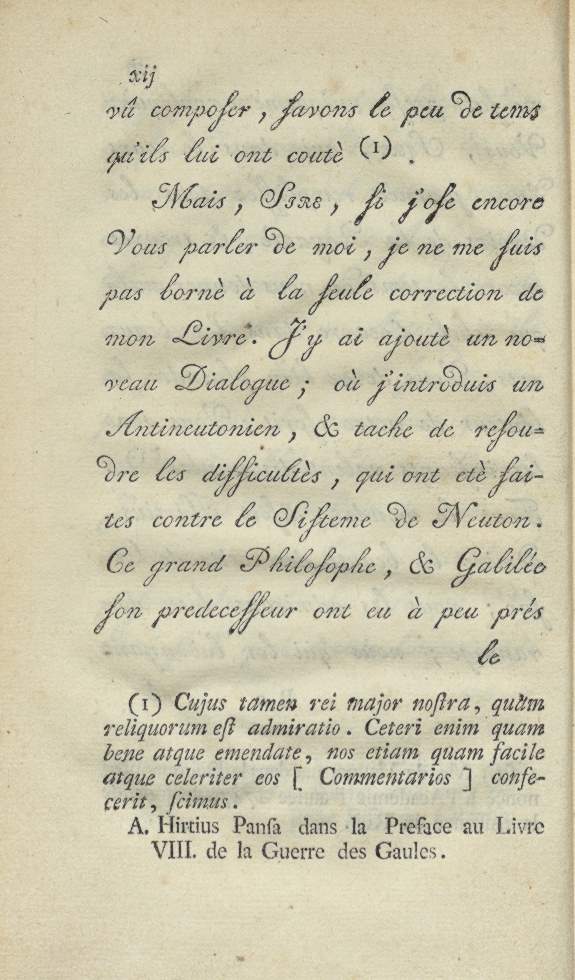 xij
vû compoſer, ſavons le peu de tems
qu'ils lui ont coutè (1).
Mais, SIRE, ſi j'oſe encore
Vous parler de moi, je ne me ſuis
pas bornè à la ſeule correction de
mon Livre. J'y ai ajoutè un no=
veau Dialogue; où j'introduis un
Antineutonien, & tache de reſou=
dre les difficultès, qui ont etè fai-
tes contre le Siſteme de Neuton.
Ce grand Philoſophe, & Galilée
ſon predeceſſeur ont eu à peu prés
le
(1) Cujus tamen rei major noſtra, quàm
reliquorum eſt admiratio. Ceteri enim quam
bene atque emendate, nos etiam quam facile
atque celeriter eos [ Commentarios ] confe-
cerit, ſcimus.
A. Hirtius Panſa dans la Preface au Livre
VIII. de la Guerre des Gaules.